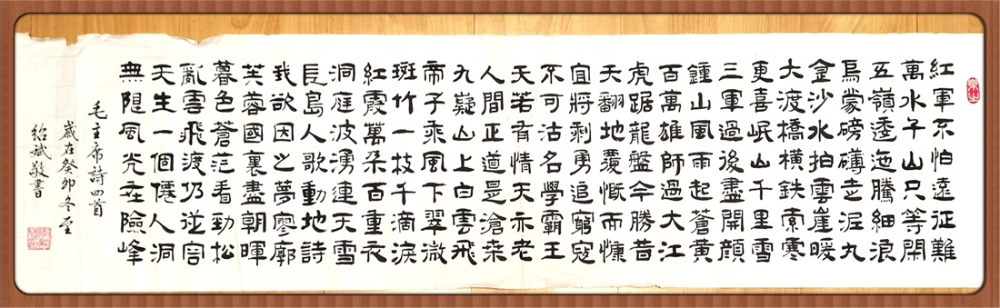 紅軍不怕遠征難
萬水千山只等閑
五嶺逶迤騰細浪
烏蒙磅礴走泥丸
金沙水拍雲崖暖
大渡橋橫鉄索寒
更喜岷山千里雪
三軍過後盡開顏
鍾山風雨起蒼黃
百萬雄師過大江
虎踞龍盤今勝昔
天翻地覆慨而慷
宜將剩勇追窮寇
不可沽名學霸王
天若有情天亦老
人間正道是滄桒
九嶷山上白雲飛
帝子乘風下翠微
斑竹一枝千滴淚
紅霞萬朵百重衣
洞庭波湧連天雪
長島人歌動地詩
我欲因之夢寥廓
芙蓉國裏盡朝暉
暮色蒼茫看勁松
亂雲飛渡仍從容
天生一個僊人洞
無限風光在險峰
毛主席詩四首
歲在癸卯冬至
紹斌敬書